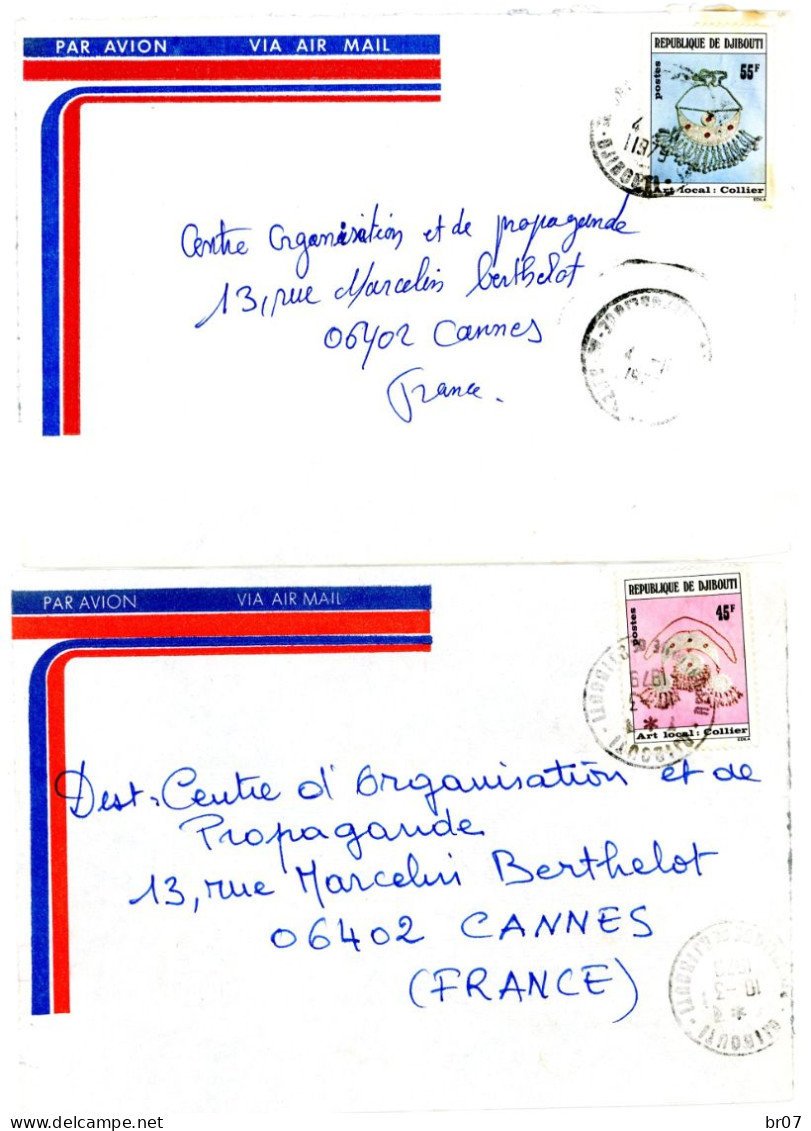 PAR AVION VIA AIR MAIL
REPUBLIQUE DE DJIBOUTI
postes
55F
Art local : Collier
DJIBOUTI
Centre Organisation et de propagande
13, rue Marcelin berthelot
06402 Cannes
France.
PAR AVION VIA AIR MAIL
REPUBLIQUE DE DJIBOUTI
postes
45F
Art local : Collier
1979
DJIBOUTI
Dest. Centre d'Organisation et de
Propagande
13, rue Marcelin Berthelot
06402 CANNES
(FRANCE)
DJIBOUTI
br07